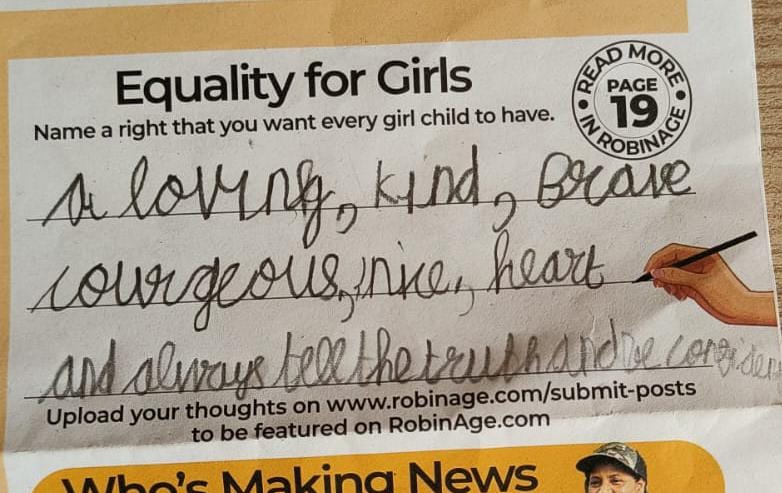 Equality for Girls
Name a right that you want every girl child to have.
READ MORE
PAGE
19
IN ROBINAGE
A loving, kind, Brave
courgeous, nice, heart
and always tell the truth and be confiden
Upload your thoughts on www.robinage.com/submit-posts
to be featured on RobinAge.com
Who's Making News